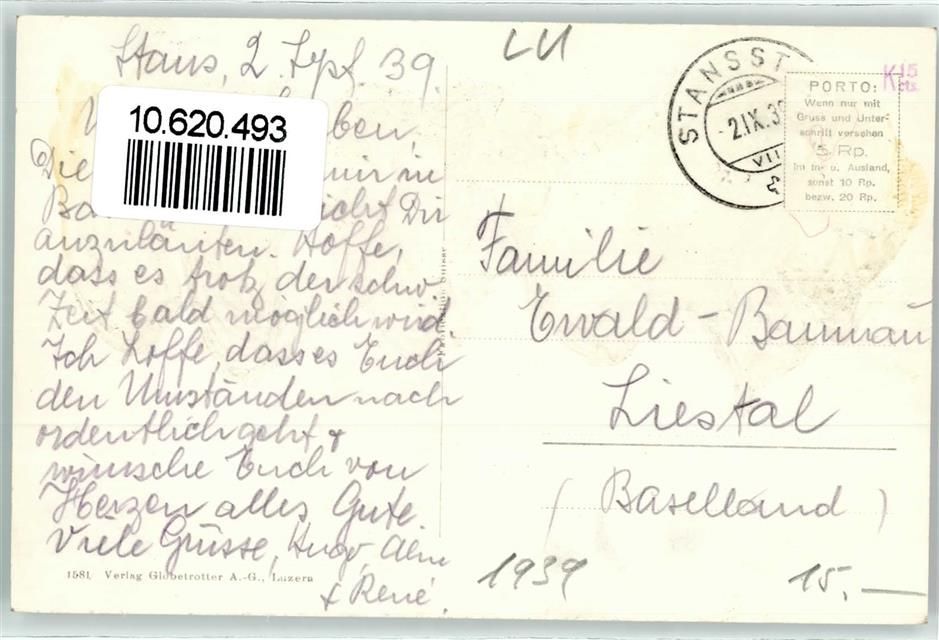 Stans, 2. Sept. 39.
10.620.493
ben,
Die mir in
Ba icht Dir
anzuläuten. Hoffe,
dass es trotz der schw.
Zeit bald möglich wird.
Ich hoffe, dass es Euch
den Umständen nach
ordentlich geht &
wünsche Euch von
Herzen alles Gute.
Viele Grüsse, Hugo,
& René.
1581 Verlag Globetrotter A.-G., Luzern
LU
STANSST
2.IX.39
VII
K 15
cts.
PORTO:
Wenn nur mit
Gruss und Unter-
schrift versehen
5 Rp.
Im In- u. Ausland,
sonst 10 Rp.
bezw. 20 Rp.
Familie
Ewald - Baumann
Liestal
(Baselland)
1939
15.—